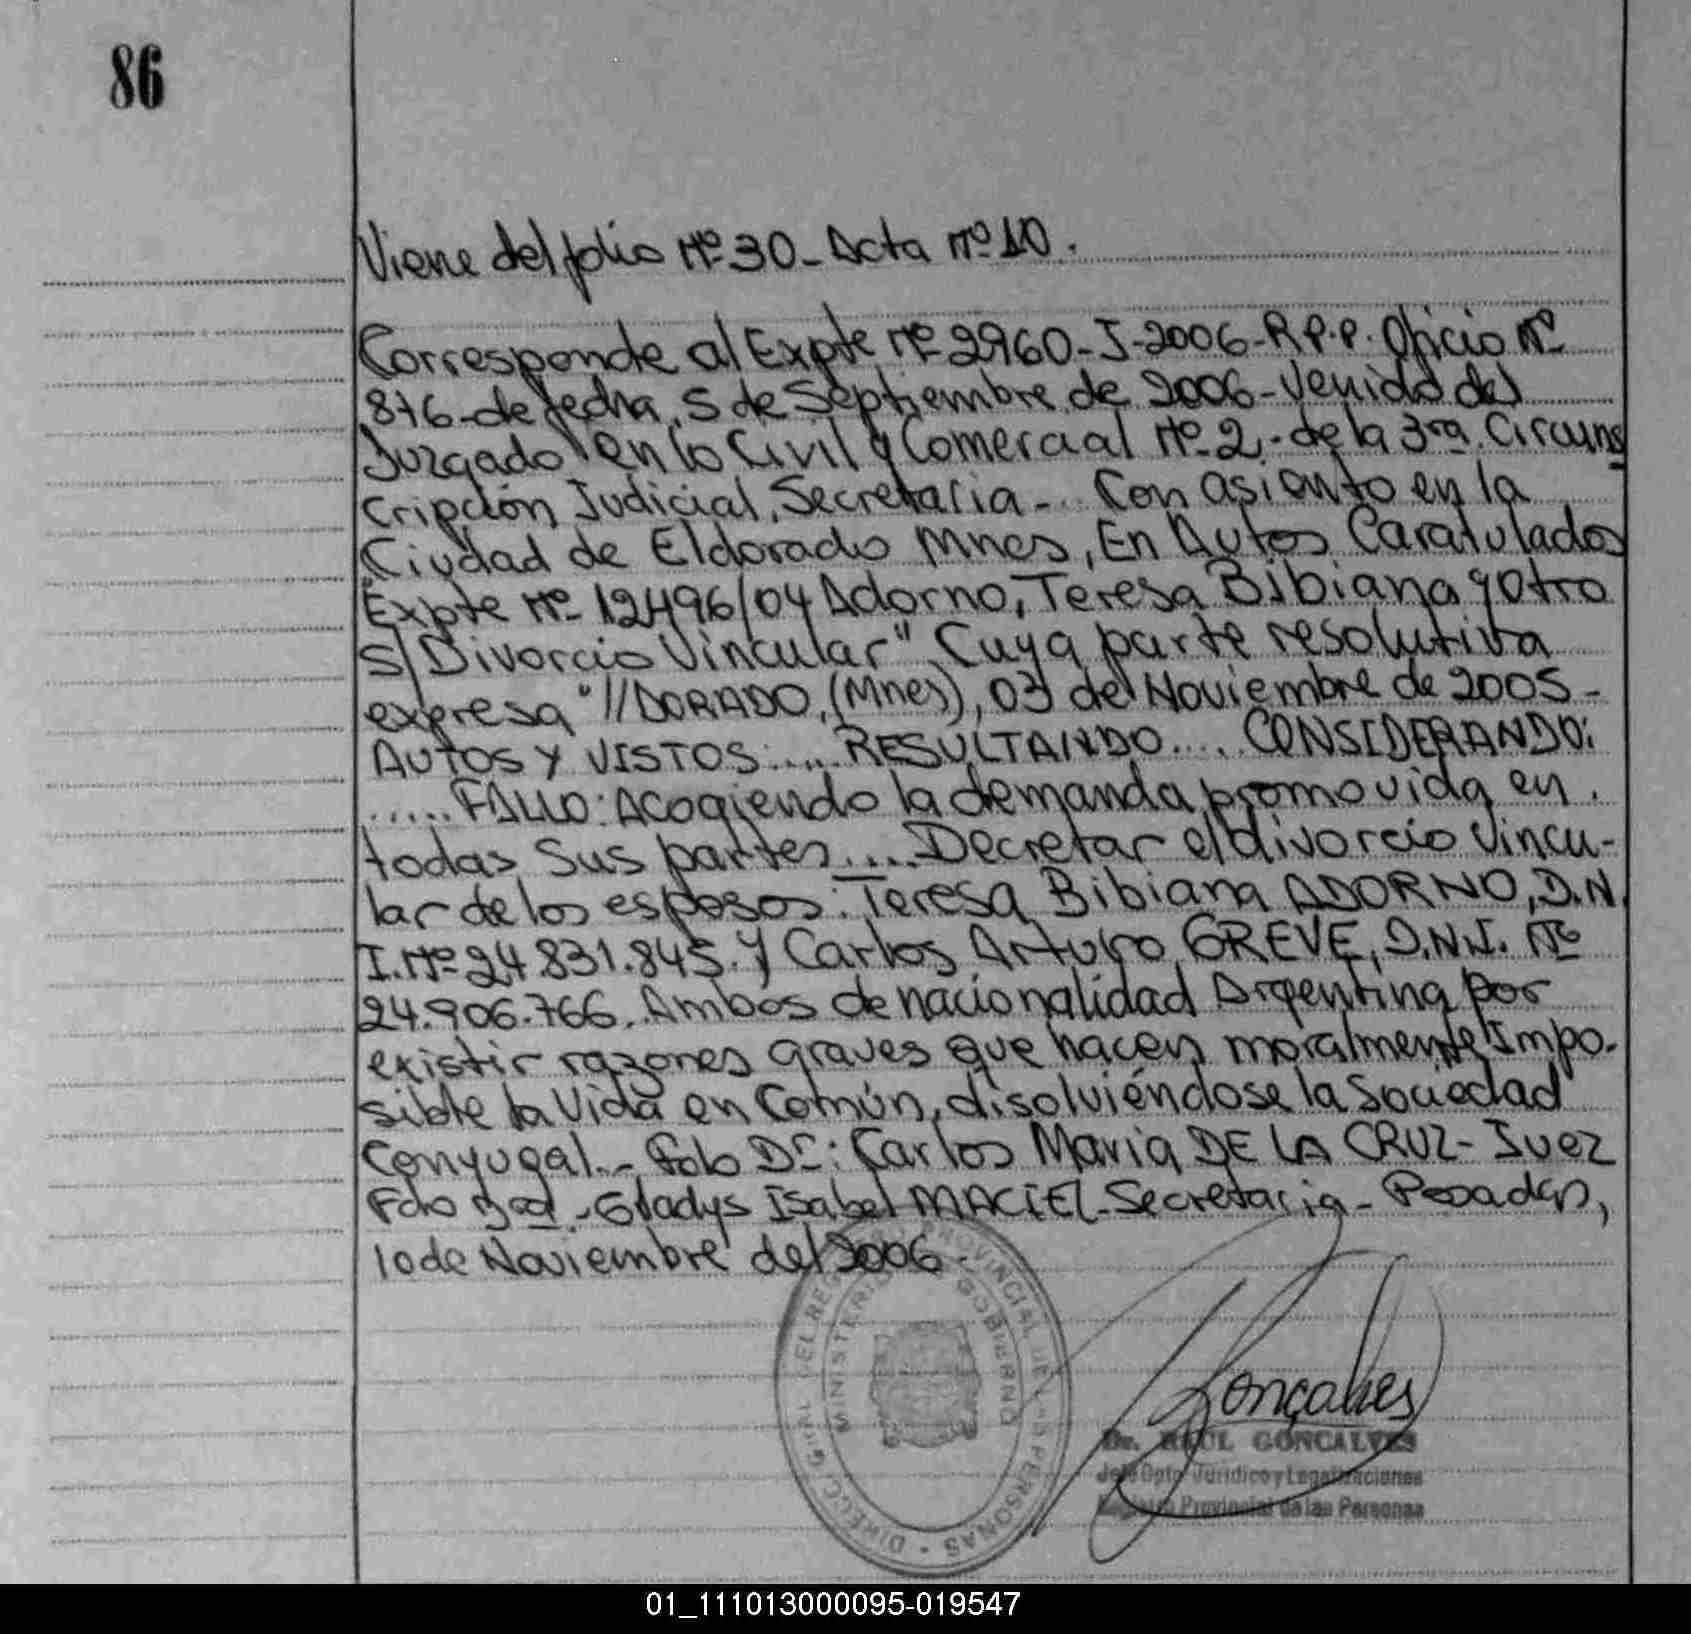 86
Viene del folio Nº 30 - Acta Nº 10.
Corresponde al Expte Nº 2960-J-2006-R.P.P. Oficio Nº
876-de fecha, 5 de Septiembre de 2006-Venido del
Juzgado en lo Civil y Comercial Nº 2.- de la 3ra. Circuns
cripción Judicial, Secretaria-.. Con asiento en la
Ciudad de Eldorado Mnes, En Autos Caratulados
"Expte Nº 12496/04 Adorno, Teresa Bibiana y Otro
S/Divorcio Vincular" Cuya parte resolutiva
expresa "//DORADO, (Mnes), 03 de Noviembre de 2005-
AUTOS Y VISTOS:.... RESULTANDO.... CONSIDERANDO:
..... FALLO: Acogiendo la demanda promovida en
todas sus partes.... Decretar el divorcio vincu-
lar de los esposos: Teresa Bibiana ADORNO, D.N.
I. Nº 24.831.845. y Carlos Arturo GREVE, D.N.I. Nº
24.906.766. Ambos de nacionalidad Argentina por
existir razones graves que hacen moralmente Impo-
sible la Vida en Común, disolviéndose la Sociedad
Conyugal.- Fdo Dr.: Carlos Maria DE LA CRUZ - Juez
Fdo Dra.- Gladys Isabel MACIEL-Secretaria- Posadas,
10 de Noviembre del 2006-
DIRECC. GRAL. DEL REG. PROVINCIAL DE LAS PERSONAS
MINISTERIO DE GOBIERNO
Gonçalves
Dr. RAUL GONCALVES
Jefe Dpto Jurídico y Legalizaciones
Registro Provincial de las Personas
01_111013000095-019547